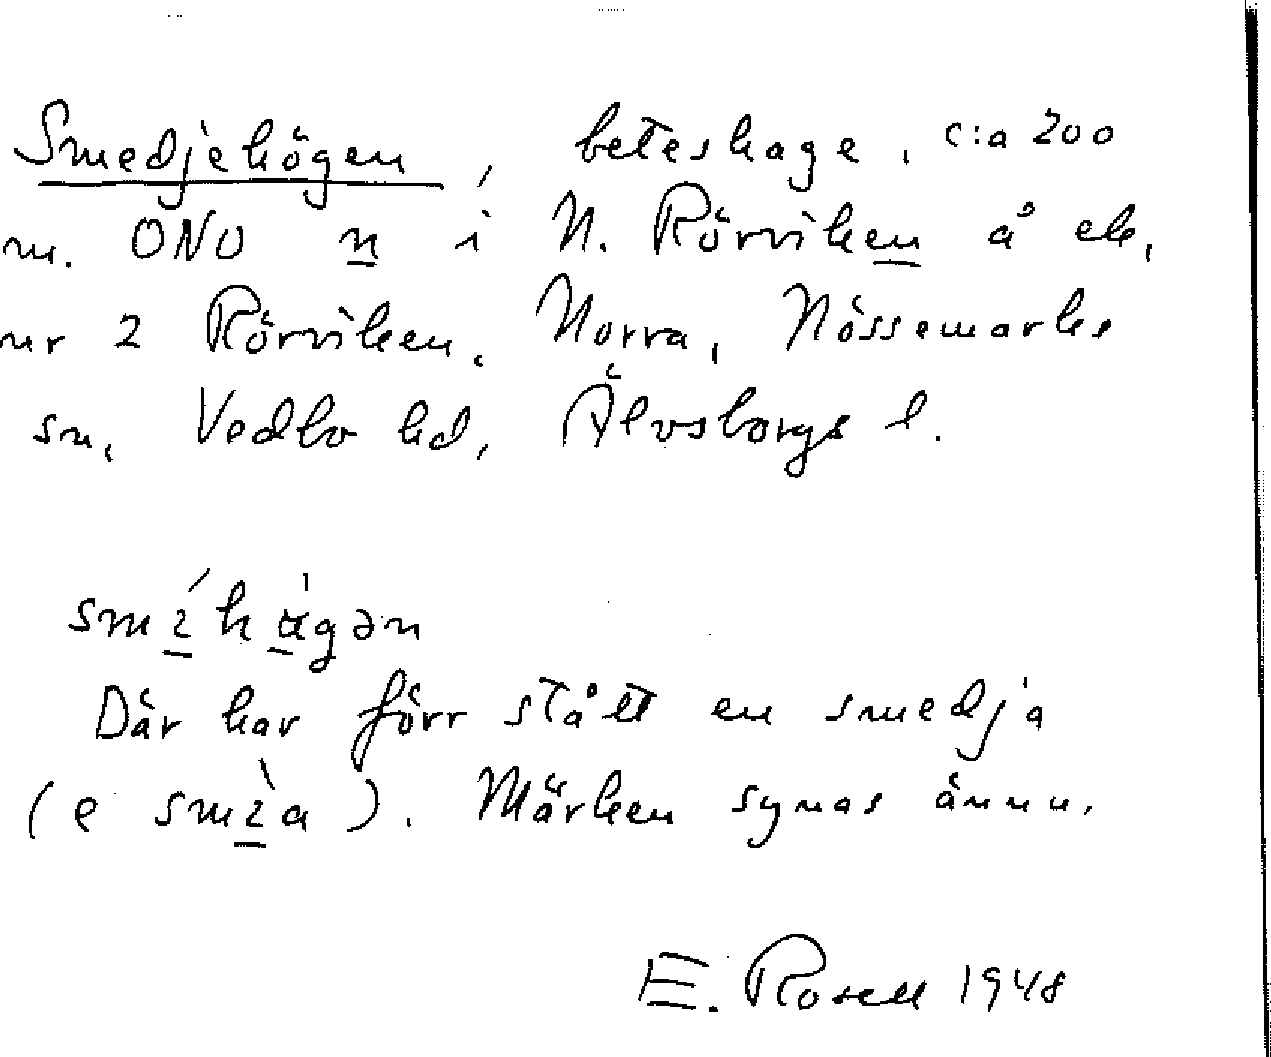 Smedjehögen, beteshage, c:a 200
m. ONO n i N. Rörviken å ek.
nr 2 Rörviken, Norra, Nössemarks
sn, Vedbo hd, Älvsborgs l.
Där har förr stått en smedja
(e smìa). Märken synas ännu.
E. Rosell 1948